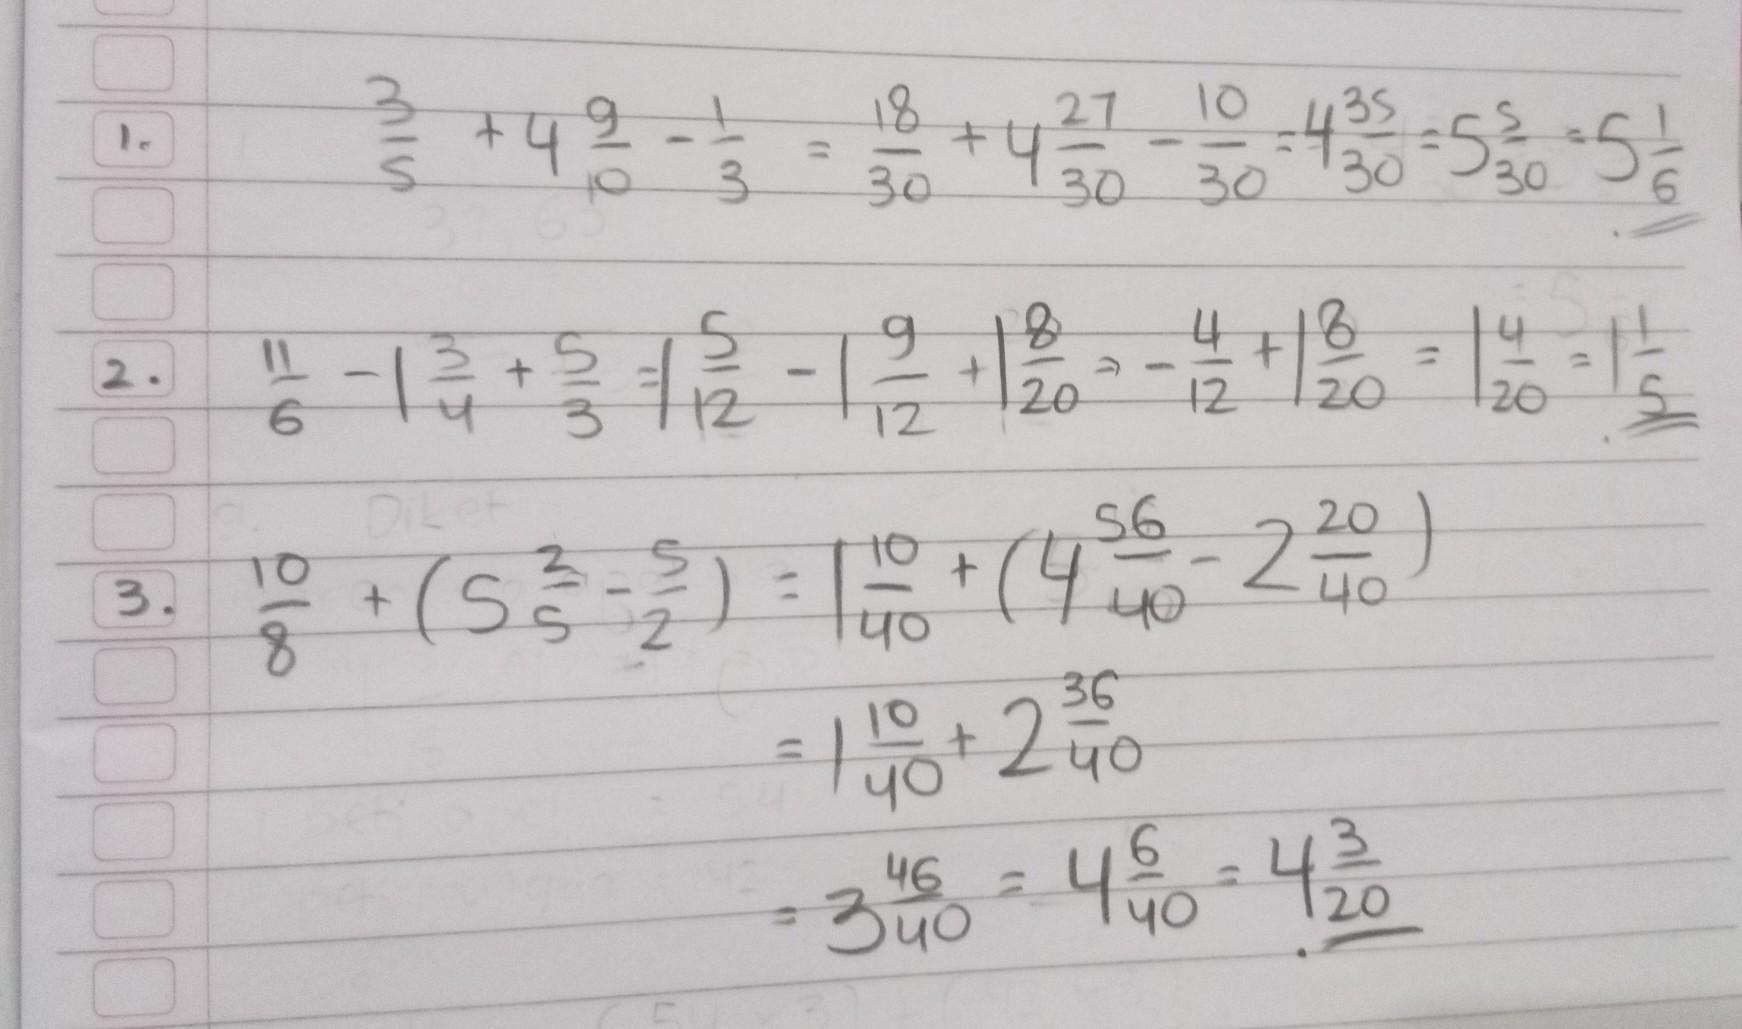 1. 3/5 + 4 9/10 - 1/3 = 18/30 + 4 27/30 - 10/30 = 4 35/30 = 5 5/30 = 5 1/6
2. 11/6 - 1 3/4 + 5/3 = 1 5/12 - 1 9/12 + 1 8/20 = - 4/12 + 1 8/20 = 1 4/20 = 1 1/5
3. 10/8 + (5 2/5 - 5/2) = 1 10/40 + (4 56/40 - 2 20/40)
= 1 10/40 + 2 36/40
= 3 46/40 = 4 6/40 = 4 3/20